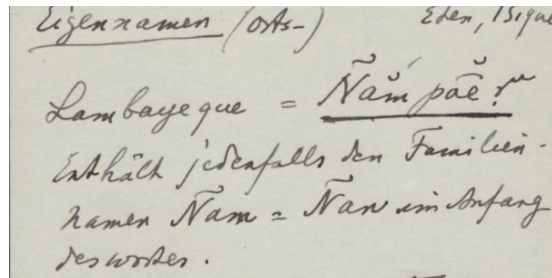 Eigennamen (Orts- Eten,
Lambayeque = Ñăm păĕ r̆
Enthält jedenfalls den Familien-
namen Ñam = Ñan im Anfang
des wortes.